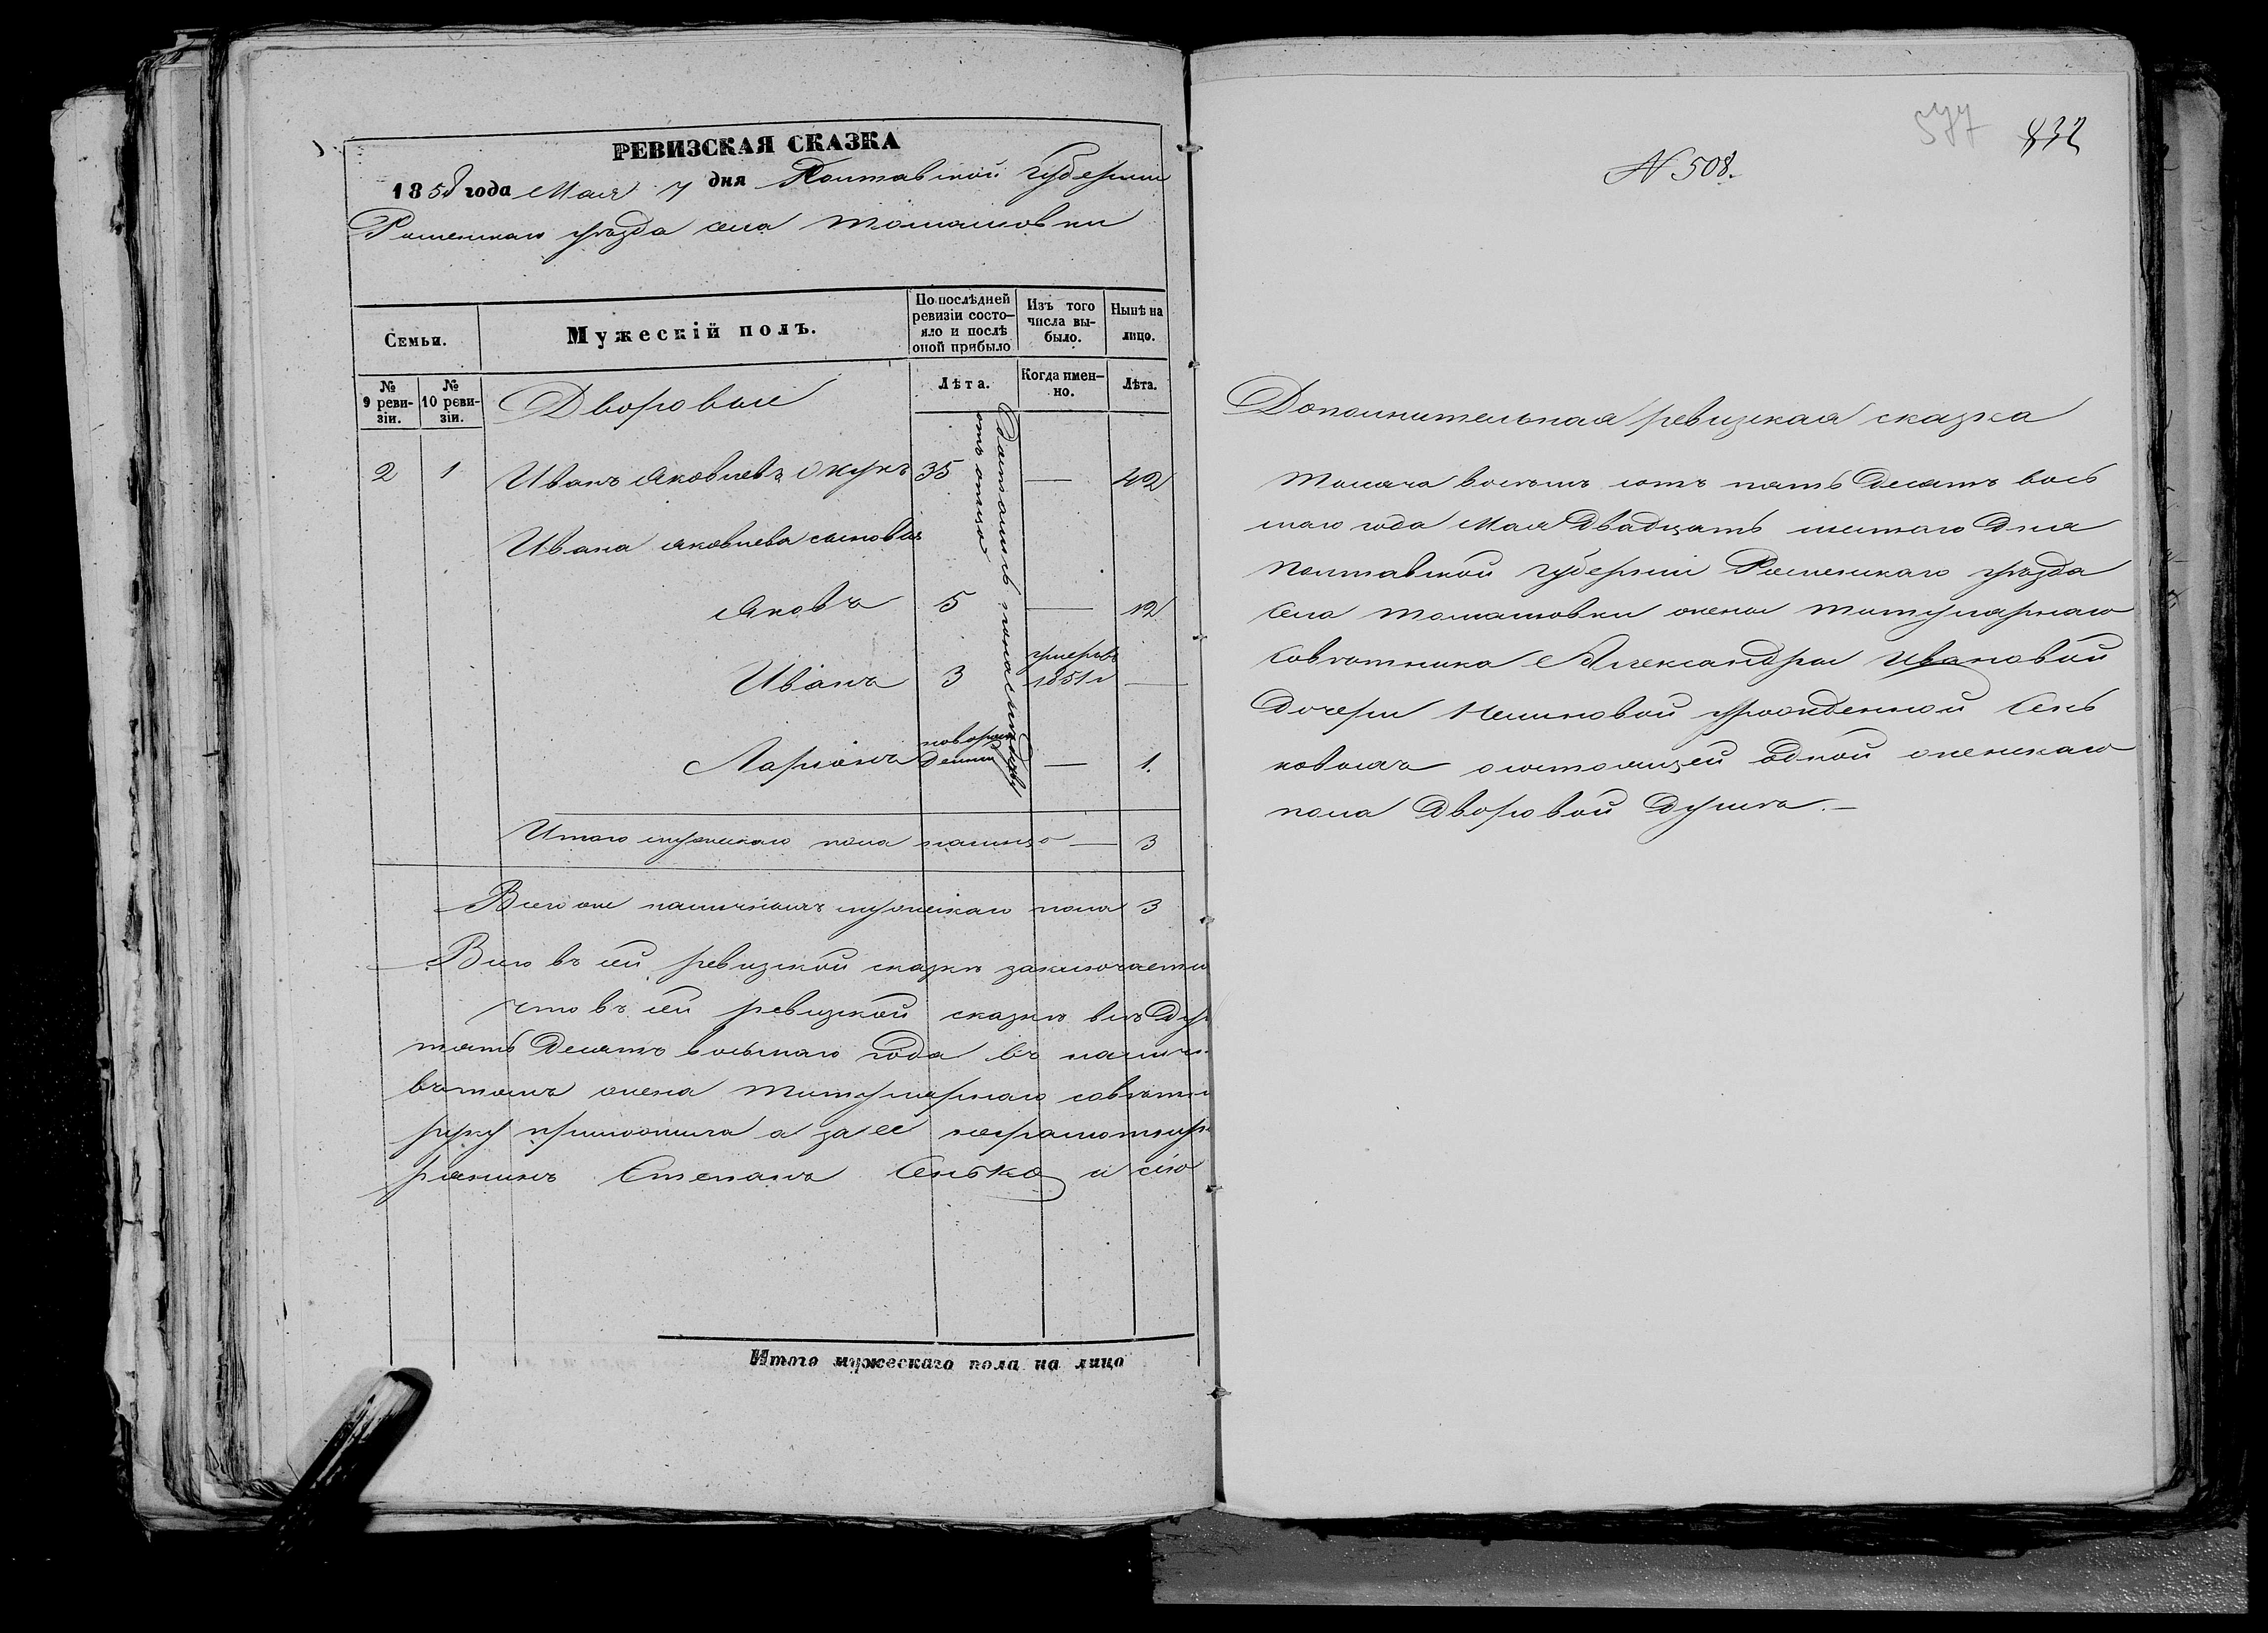 РЕВИЗСКАЯ СКАЗКА
1858 года Мая 7 дня Полтавской Губернии
Роменскаго уѣзда села Томашовки
Семьи.
Мужескій полъ.
По послѣдней ревизіи состояло и послѣ оной прибыло
Изъ того числа выбыло.
Нынѣ на лицо.
№ 9 ревизіи.
№ 10 ревизіи.
Дворовые
Лѣта.
Когда именно.
Лѣта.
2 1 Иванъ Яковлевъ Окунъ 35 — 42
Ивана Яковлева сыновья
Яковъ 5 — 12
Иванъ 3 умеръ въ 1851 г —
Ларіонъ новорожденный — 1.
Достались по наслѣдству
отъ отца
Итого мужескаго пола налицо — 3
Всего же наличныхъ мужескаго пола 3
Всего въ сей ревизской сказкѣ заключается
Что въ сей ревизской сказкѣ всѣ Ду
пять Десять восьмаго года въ налич
въ томъ жена титулярнаго совѣтн
руку приложила а за ее неграмотную
Степанъ Сенько и сію
Итого мужескаго пола на лицо
577 832
N 508.
Дополнительная ревизская сказка
Тысяча восемь сотъ пять Десятъ вось
маго года Мая Двадцать шестаго Дня
Полтавской Губерніи Роменскаго уѣзда
Села Томашовки жены титулярнаго
Совѣтника Александры Ивановой
Дочери урожденной Сень
ковыхъ о состоящей одной женскаго
пола Дворовой Душѣ.—